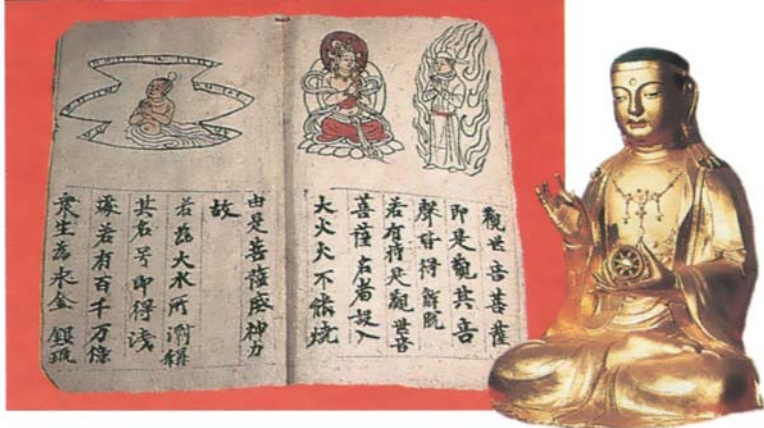 觀世音菩薩
即是觀其音
聲皆得解脫
若有持是觀世音
菩薩名者設入
大火火不能燒
由是菩薩威神力
故
若為大水所漂稱
其名号即得淺
處若有百千万億
衆生為求金銀琉